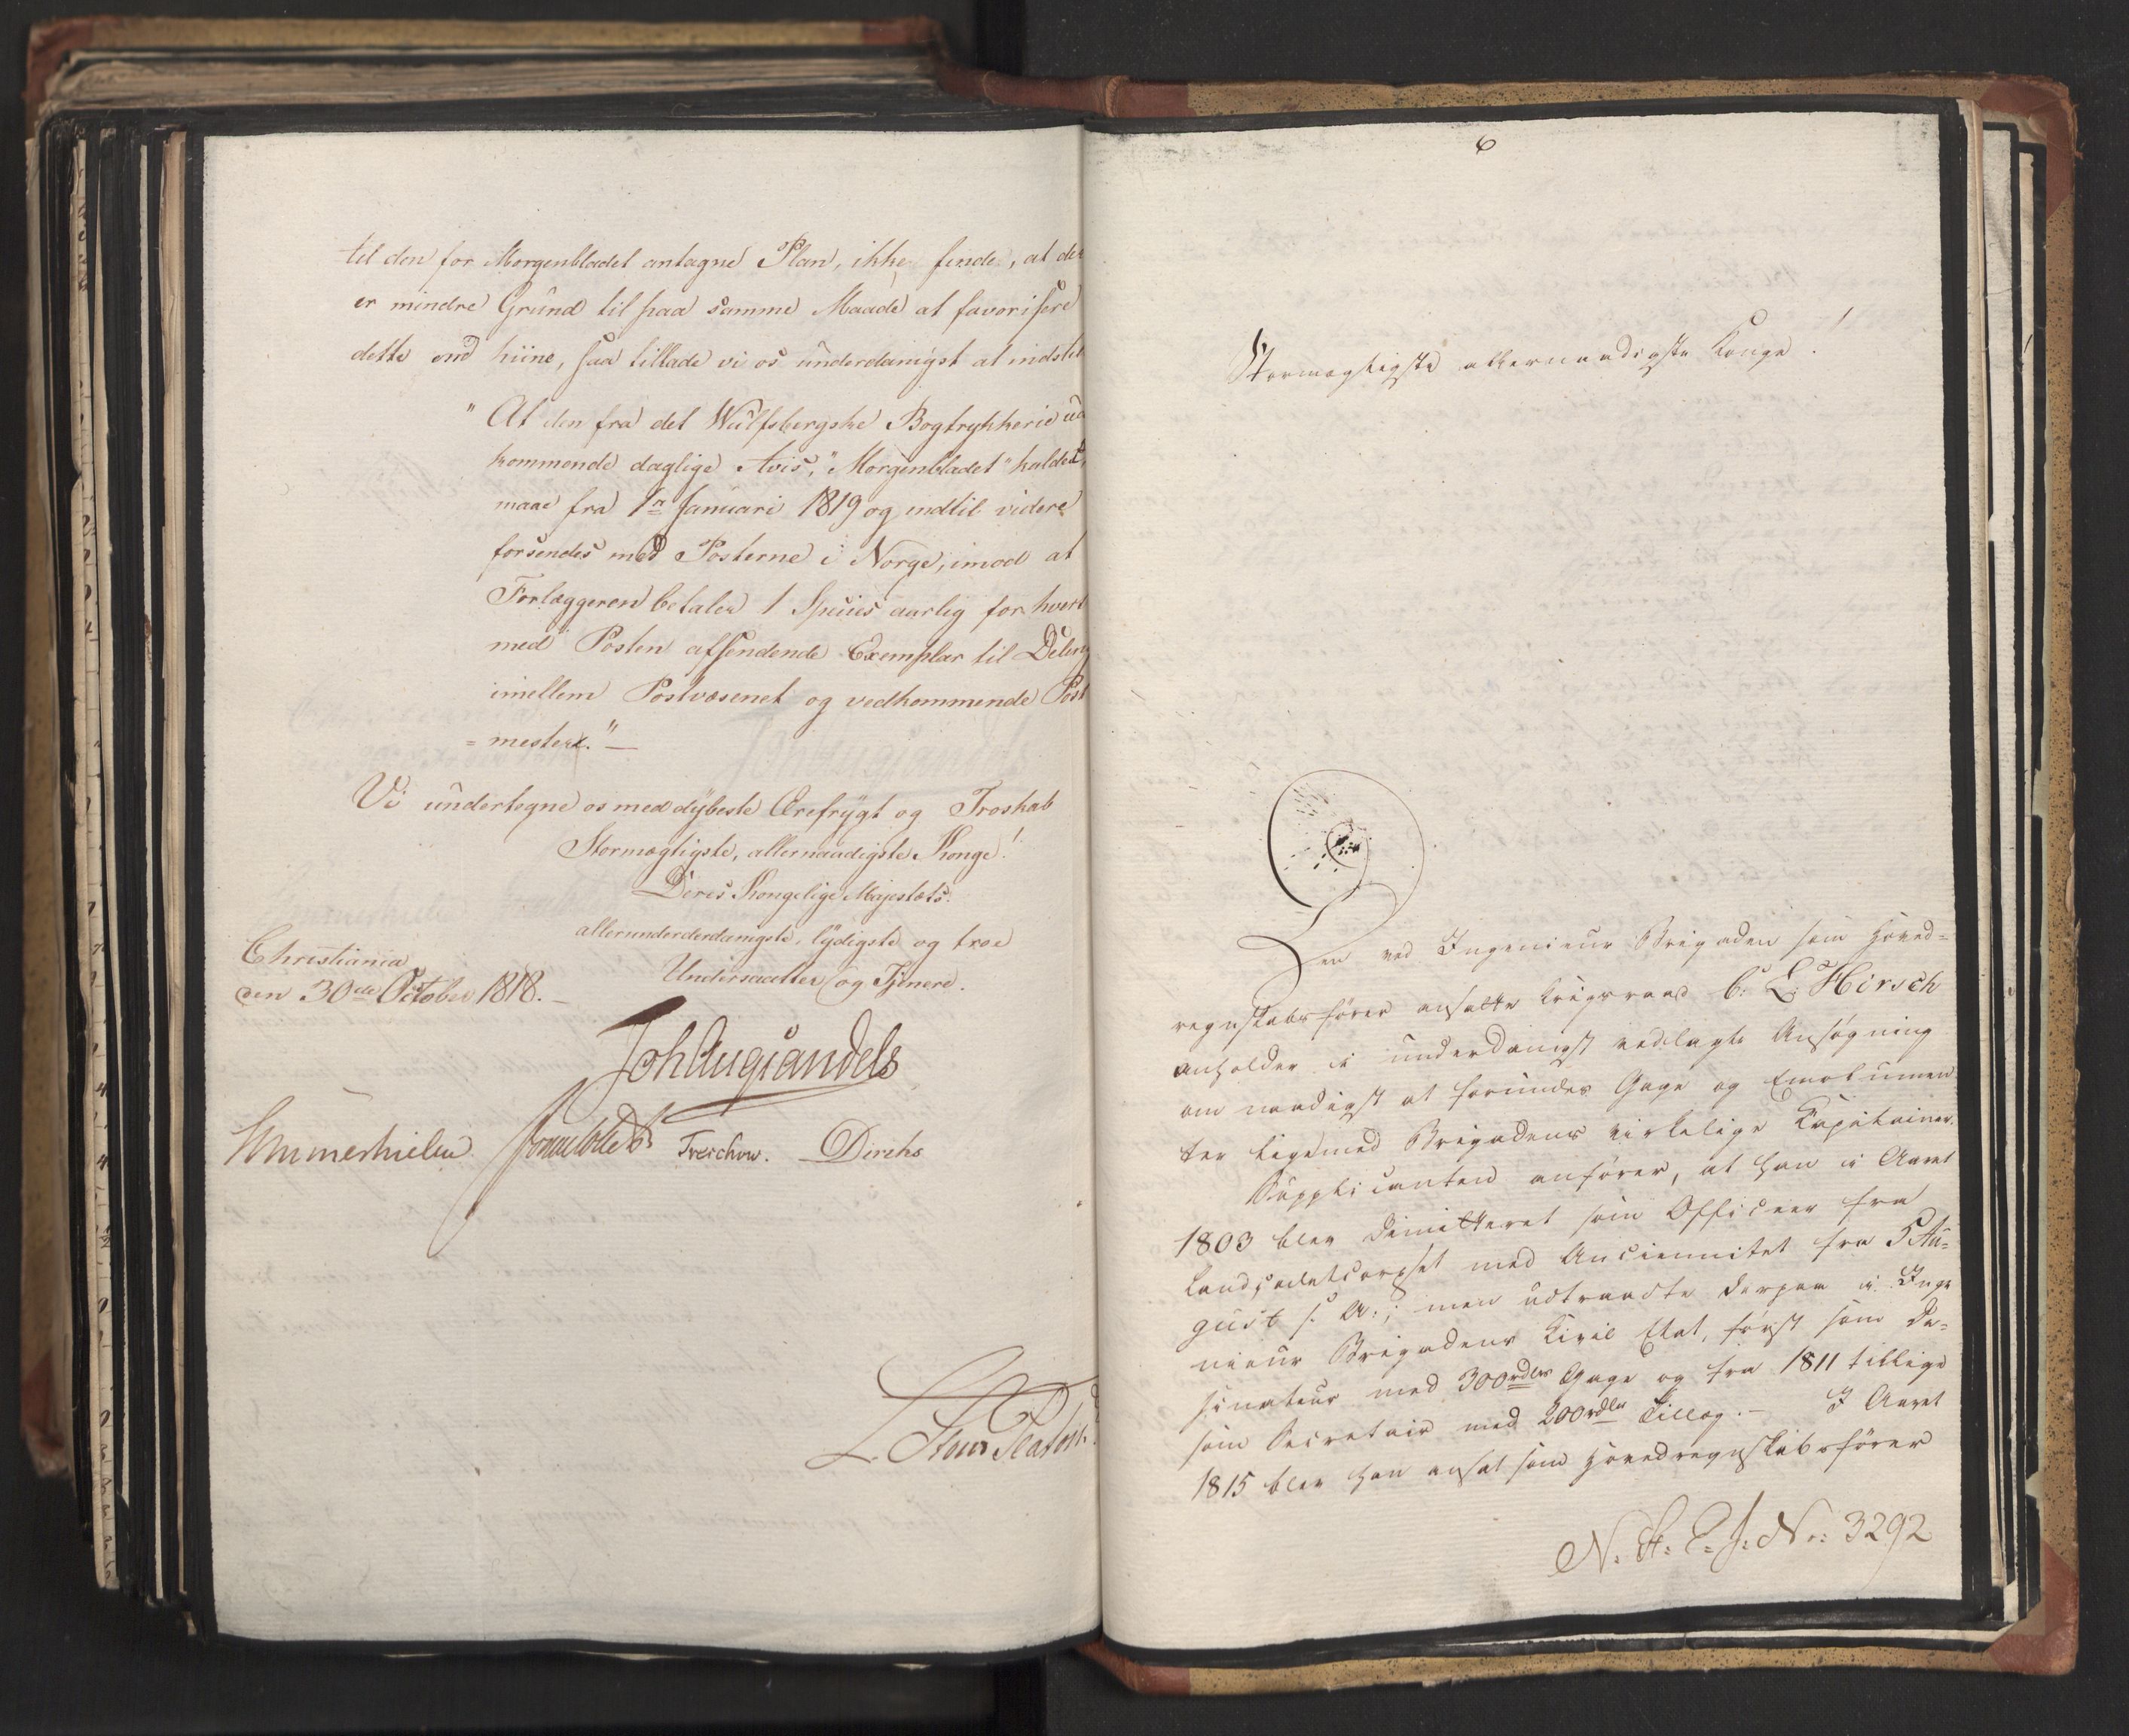 til den for Morgenbladet antagne Plan, ikke finde, at der
er mindre Grund til paa samme Maade at favorisere
dette end hiine, saa tillade vi os underdanigst at indstil
"At den fra det Wulfsbergske Bogtrykkerie ud
kommende daglige Avis, "Morgenbladet" kaldet,
maae fra 1n Januari 1819 og indtil videre
forsendes med Posterne i Norge, imod at
Forlæggeren betaler 1 Species aarlig for hvert
med Posten afsendende Exemplar til Deling
imellem Postvæsenet og vedkommende Post
= mestere." —
Vi undertegne os med dybeste Ærefrygt og Troskab
Stormægtigste, allernaadigste Konge!
Deres Kongelige Majestæts
allerunderderdanigste, lydigste og troe
Undersaatter og Tjenere.
Christiania
den 30de October 1818. —
Joh Aug Sandels
Sommerhielm Treschow. Diriks
6
Stormægtigste allernaadigste Konge!
Den ved Ingenieur Brigaden som Hoved=
regnskabsfører ansatte Krigsraad C. L. Hirsch
anholder i underdanigst vedlagte Ansøgning
om naadigst at forundes Gage og Emolumen
ter ligemed Brigadens virkelige Kapitainer.
Supplicanten anfører, at han i Aaret
1803 blev dimitteret som Officeer fra
Landcadetcorpset med Anciennitet fra 5 Au=
gust s. A.; men udtraadte derpaa i Inge
nieur Brigadens Civil Etat, først som De=
sinateur med 300rdlr Gage og fra 1811 tillige
som Secretair med 200rdlr Tillæg. — I Aaret
1815 blev han ansat som Hovedregnskabsfører
N. St. E. J. No: 3292